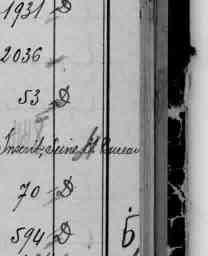 1931 D
2036
53 D
Inscrit, Seine 4e Bureau
70 D
594 D 6